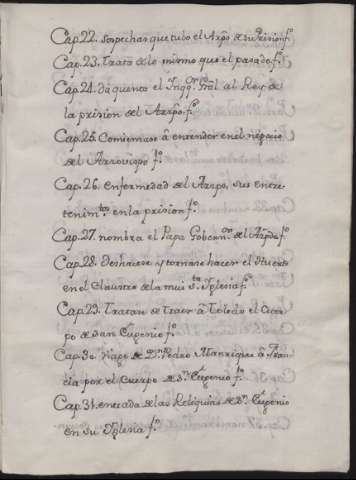 Cap. 22. Sospechas que tubo el Arzpõ. de su Prision fº
Cap. 23. Trata de lo mismo que el pasado fº
Cap. 24. Dà quenta el Inqqr. Gral al Rey de
la prision del Arzpõ. fº
Cap. 25. Comienzase â entender en el negocio
del Arzobispo fº
Cap. 26. enfermedad del Arzpõ, sus entre-
tenimtos en la prision fº
Cap. 27. nombra el Papa Gobernor del Arzpdo fº
Cap. 28. Deshacese y tornase hacer el Huerto
en el Claustro de la mui Sta Iglesia fº
Cap. 29. Tratan de traer â Toledo el Cuer-
po de San Eugenio fº
Cap. 30. Viage de Dn Pedro Manrique à Fran-
cia por el Cuerpo de Sn Eugenio fº
Cap. 31. entrada de las Reliquias de Sn Eugenio
en su Iglesia fº